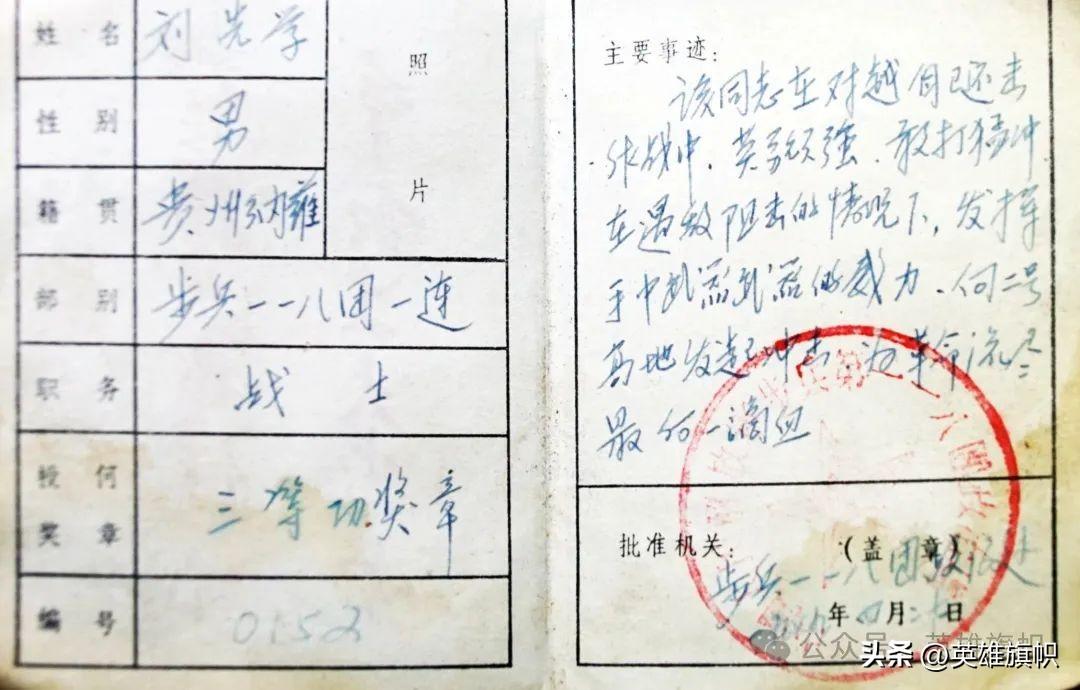 姓名 刘先学
照片
性别 男
籍贯 贵州纳雍
部别 步兵一一八团一连
职务 战士
授何奖章 三等功奖章
编号 0152
主要事迹:
该同志在对越自卫还击
作战中,英勇顽强,敢打猛冲
在遇敌阻击的情况下,发挥
手中武器武器的威力,向二号
高地发起冲击,为革命流尽
最后一滴血
批准机关: (盖 章)
步兵一一八团政治处
年四月二十日
公众号·英雄旗帜
头条 @英雄旗帜